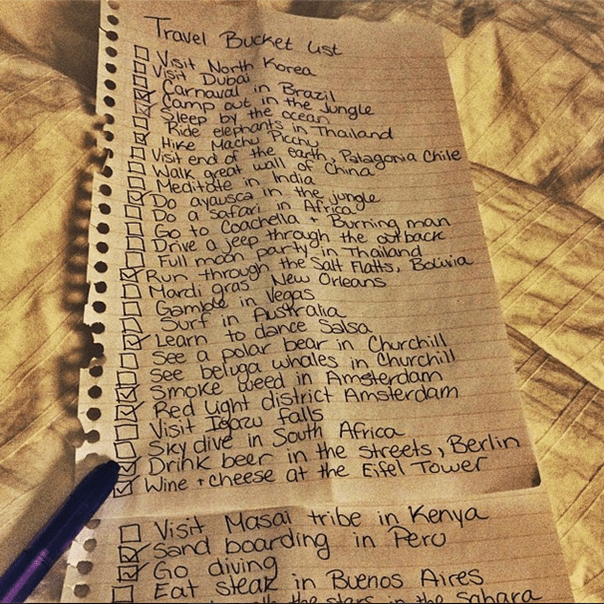 Travel Bucket List
Visit North Korea
Visit Dubai
Carnaval in Brazil
Camp out in the jungle
Sleep by the ocean
Ride elephants in Thailand
Hike Machu Picchu
Visit end of the earth, Patagonia Chile
Walk great wall of China
Meditate in India
Do ayausca in the jungle
Do a safari in Africa
Go to Coachella + Burning man
Drive a jeep through the outback
Full moon party in Thailand
Run through the Salt Flatts, Bolivia
Mardi gras New Orleans
Gamble in Vegas
Surf in Australia
Learn to dance Salsa
See a polar bear in Churchill
See beluga whales in Churchill
Smoke weed in Amsterdam
Red light district Amsterdam
Visit Igazu falls
Sky dive in South Africa
Drink beer in the streets, Berlin
Wine + cheese at the Eifel Tower
Visit Masai tribe in Kenya
Sand boarding in Peru
Go diving
Eat steak in Buenos Aires
the stars in the sahara